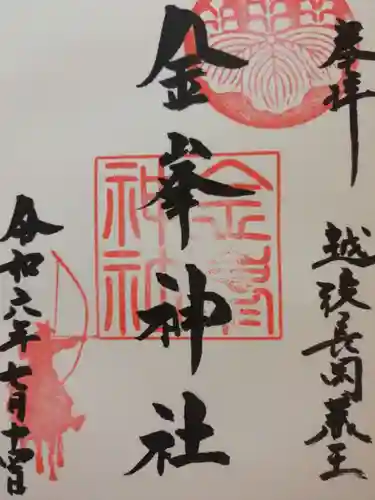 奉拝
越後長岡蔵王
金峯神社
金峯神社
令和六年七月十四日